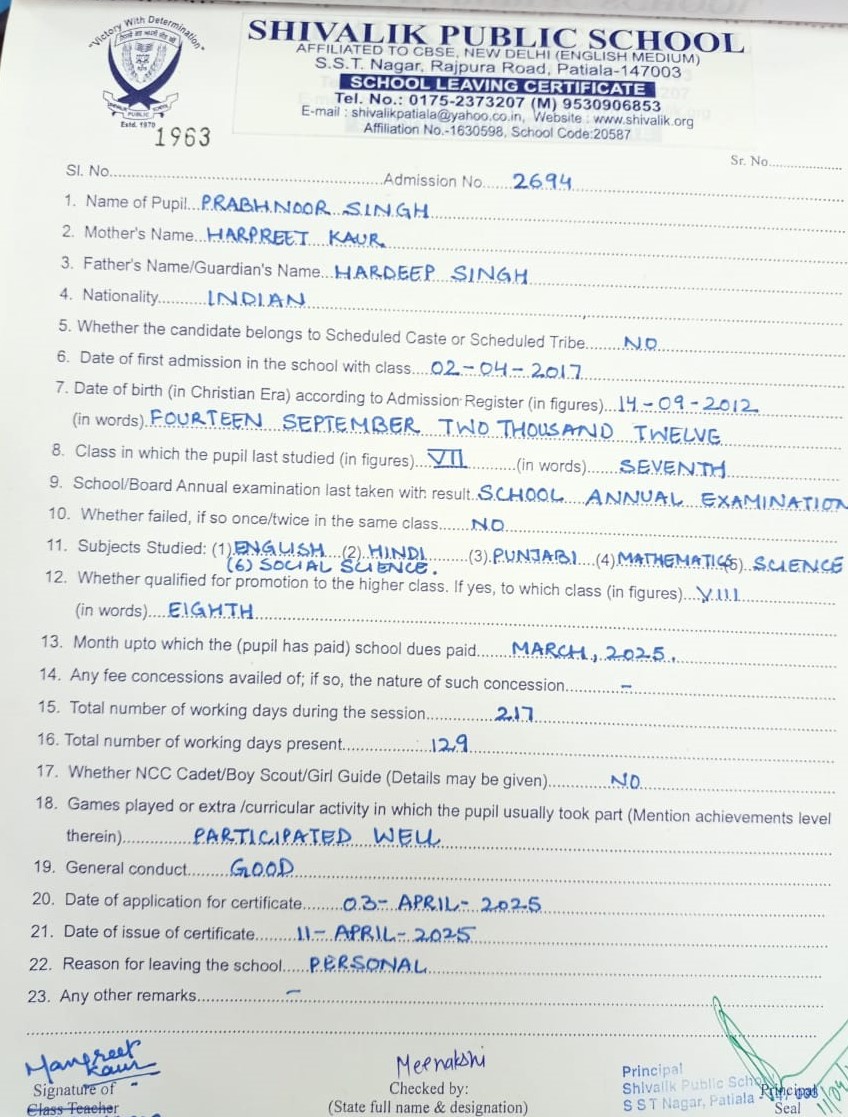 "Victory With Determination"
SHIVALIK PUBLIC SCHOOL
AFFILIATED TO CBSE, NEW DELHI (ENGLISH MEDIUM)
S.S.T. Nagar, Rajpura Road, Patiala-147003
SCHOOL LEAVING CERTIFICATE
Tel. No.: 0175-2373207 (M) 9530906853
E-mail : shivalikpatiala@yahoo.co.in, Website : www.shivalik.org
Affiliation No.-1630598, School Code:20587
PUBLIC
Estd. 1970
1963
Sr. No.
Sl. No. Admission No. 2694
1. Name of Pupil PRABHNOOR SINGH
2. Mother's Name HARPREET KAUR
3. Father's Name/Guardian's Name HARDEEP SINGH
4. Nationality INDIAN
5. Whether the candidate belongs to Scheduled Caste or Scheduled Tribe NO
6. Date of first admission in the school with class 02-04-2017
7. Date of birth (in Christian Era) according to Admission Register (in figures) 14-09-2012
(in words) FOURTEEN SEPTEMBER TWO THOUSAND TWELVE
8. Class in which the pupil last studied (in figures) VII (in words) SEVENTH
9. School/Board Annual examination last taken with result SCHOOL ANNUAL EXAMINATION
10. Whether failed, if so once/twice in the same class NO
11. Subjects Studied: (1) ENGLISH (2) HINDI (3) PUNJABI (4) MATHEMATICS (5) SCIENCE
(6) SOCIAL SCIENCE.
12. Whether qualified for promotion to the higher class. If yes, to which class (in figures) VIII
(in words) EIGHTH
13. Month upto which the (pupil has paid) school dues paid MARCH, 2025.
14. Any fee concessions availed of; if so, the nature of such concession –
15. Total number of working days during the session 217
16. Total number of working days present 129
17. Whether NCC Cadet/Boy Scout/Girl Guide (Details may be given) NO
18. Games played or extra /curricular activity in which the pupil usually took part (Mention achievements level
therein) PARTICIPATED WELL
19. General conduct GOOD
20. Date of application for certificate 03-APRIL-2025
21. Date of issue of certificate 11-APRIL-2025
22. Reason for leaving the school PERSONAL
23. Any other remarks –
Manpreet
Kaur
Signature of
Class Teacher
Meenakshi
Checked by:
(State full name & designation)
Principal
Shivalik Public School
S S T Nagar, Patiala
Principal
Seal